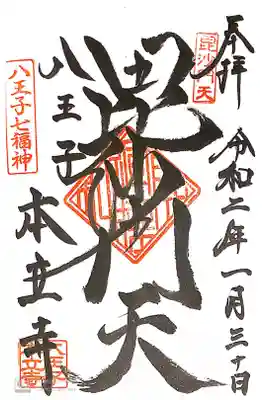 奉拝
令和二年一月三十日
毘沙門天
毘沙門天
八王子
本立寺
八王子七福神